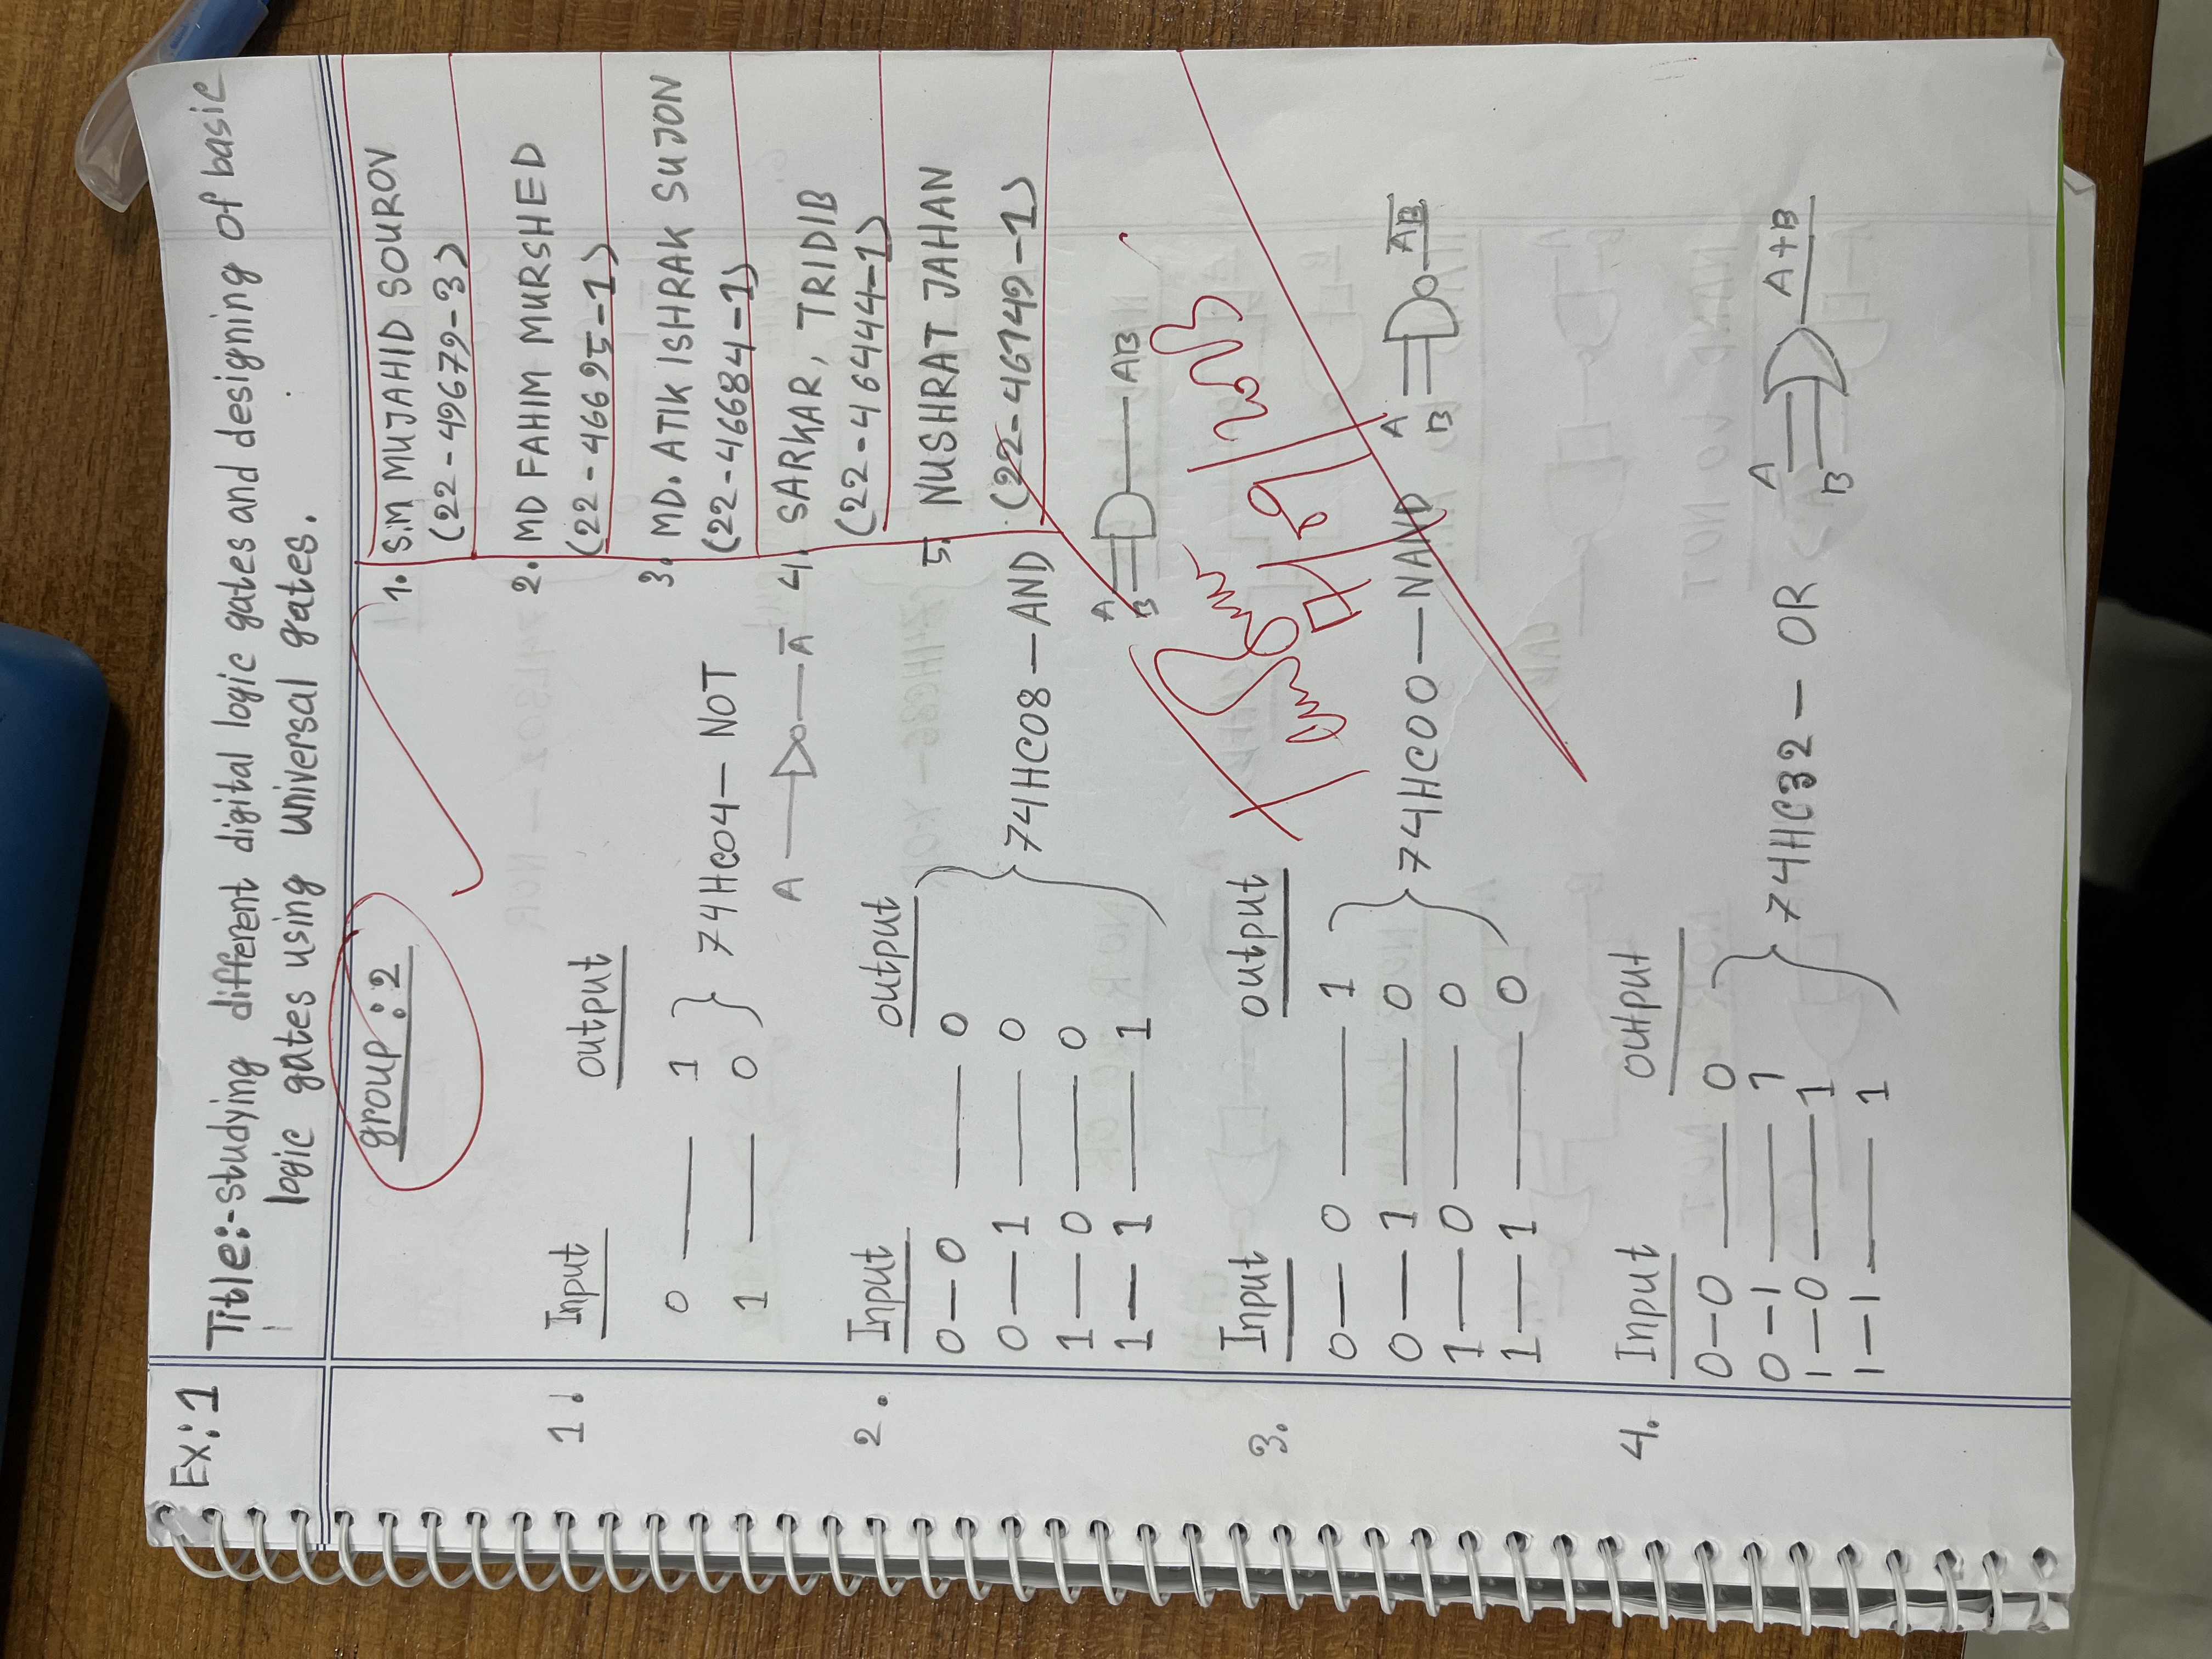 Ex:1
Title:- studying different digital logic gates and designing of basic
logic gates using universal gates.
group : 2
1. S.M MUJAHID SOUROV
(22-49679-3)
2. MD FAHIM MURSHED
(22-46695-1)
3. MD. ATIK ISHRAK SUJON
(22-46684-1)
4. SARKAR, TRIDIB
(22-46444-1)
5. NUSHRAT JAHAN
(22-46749-1)
1. Input output
0 — 1
1 — 0
74HC04 — NOT
A A̅
2. Input output
0 — 0 — 0
0 — 1 — 0
1 — 0 — 0
1 — 1 — 1
74HC08 — AND
A
B
AB
7/09/2023
3. Input output
0 — 0 — 1
0 — 1 — 0
1 — 0 — 0
1 — 1 — 0
74HC00 — NAND
A
B
A̅B̅
4. Input output
0-0 — 0
0-1 — 1
1-0 — 1
1-1 — 1
74HC32 — OR
A
B
A+B